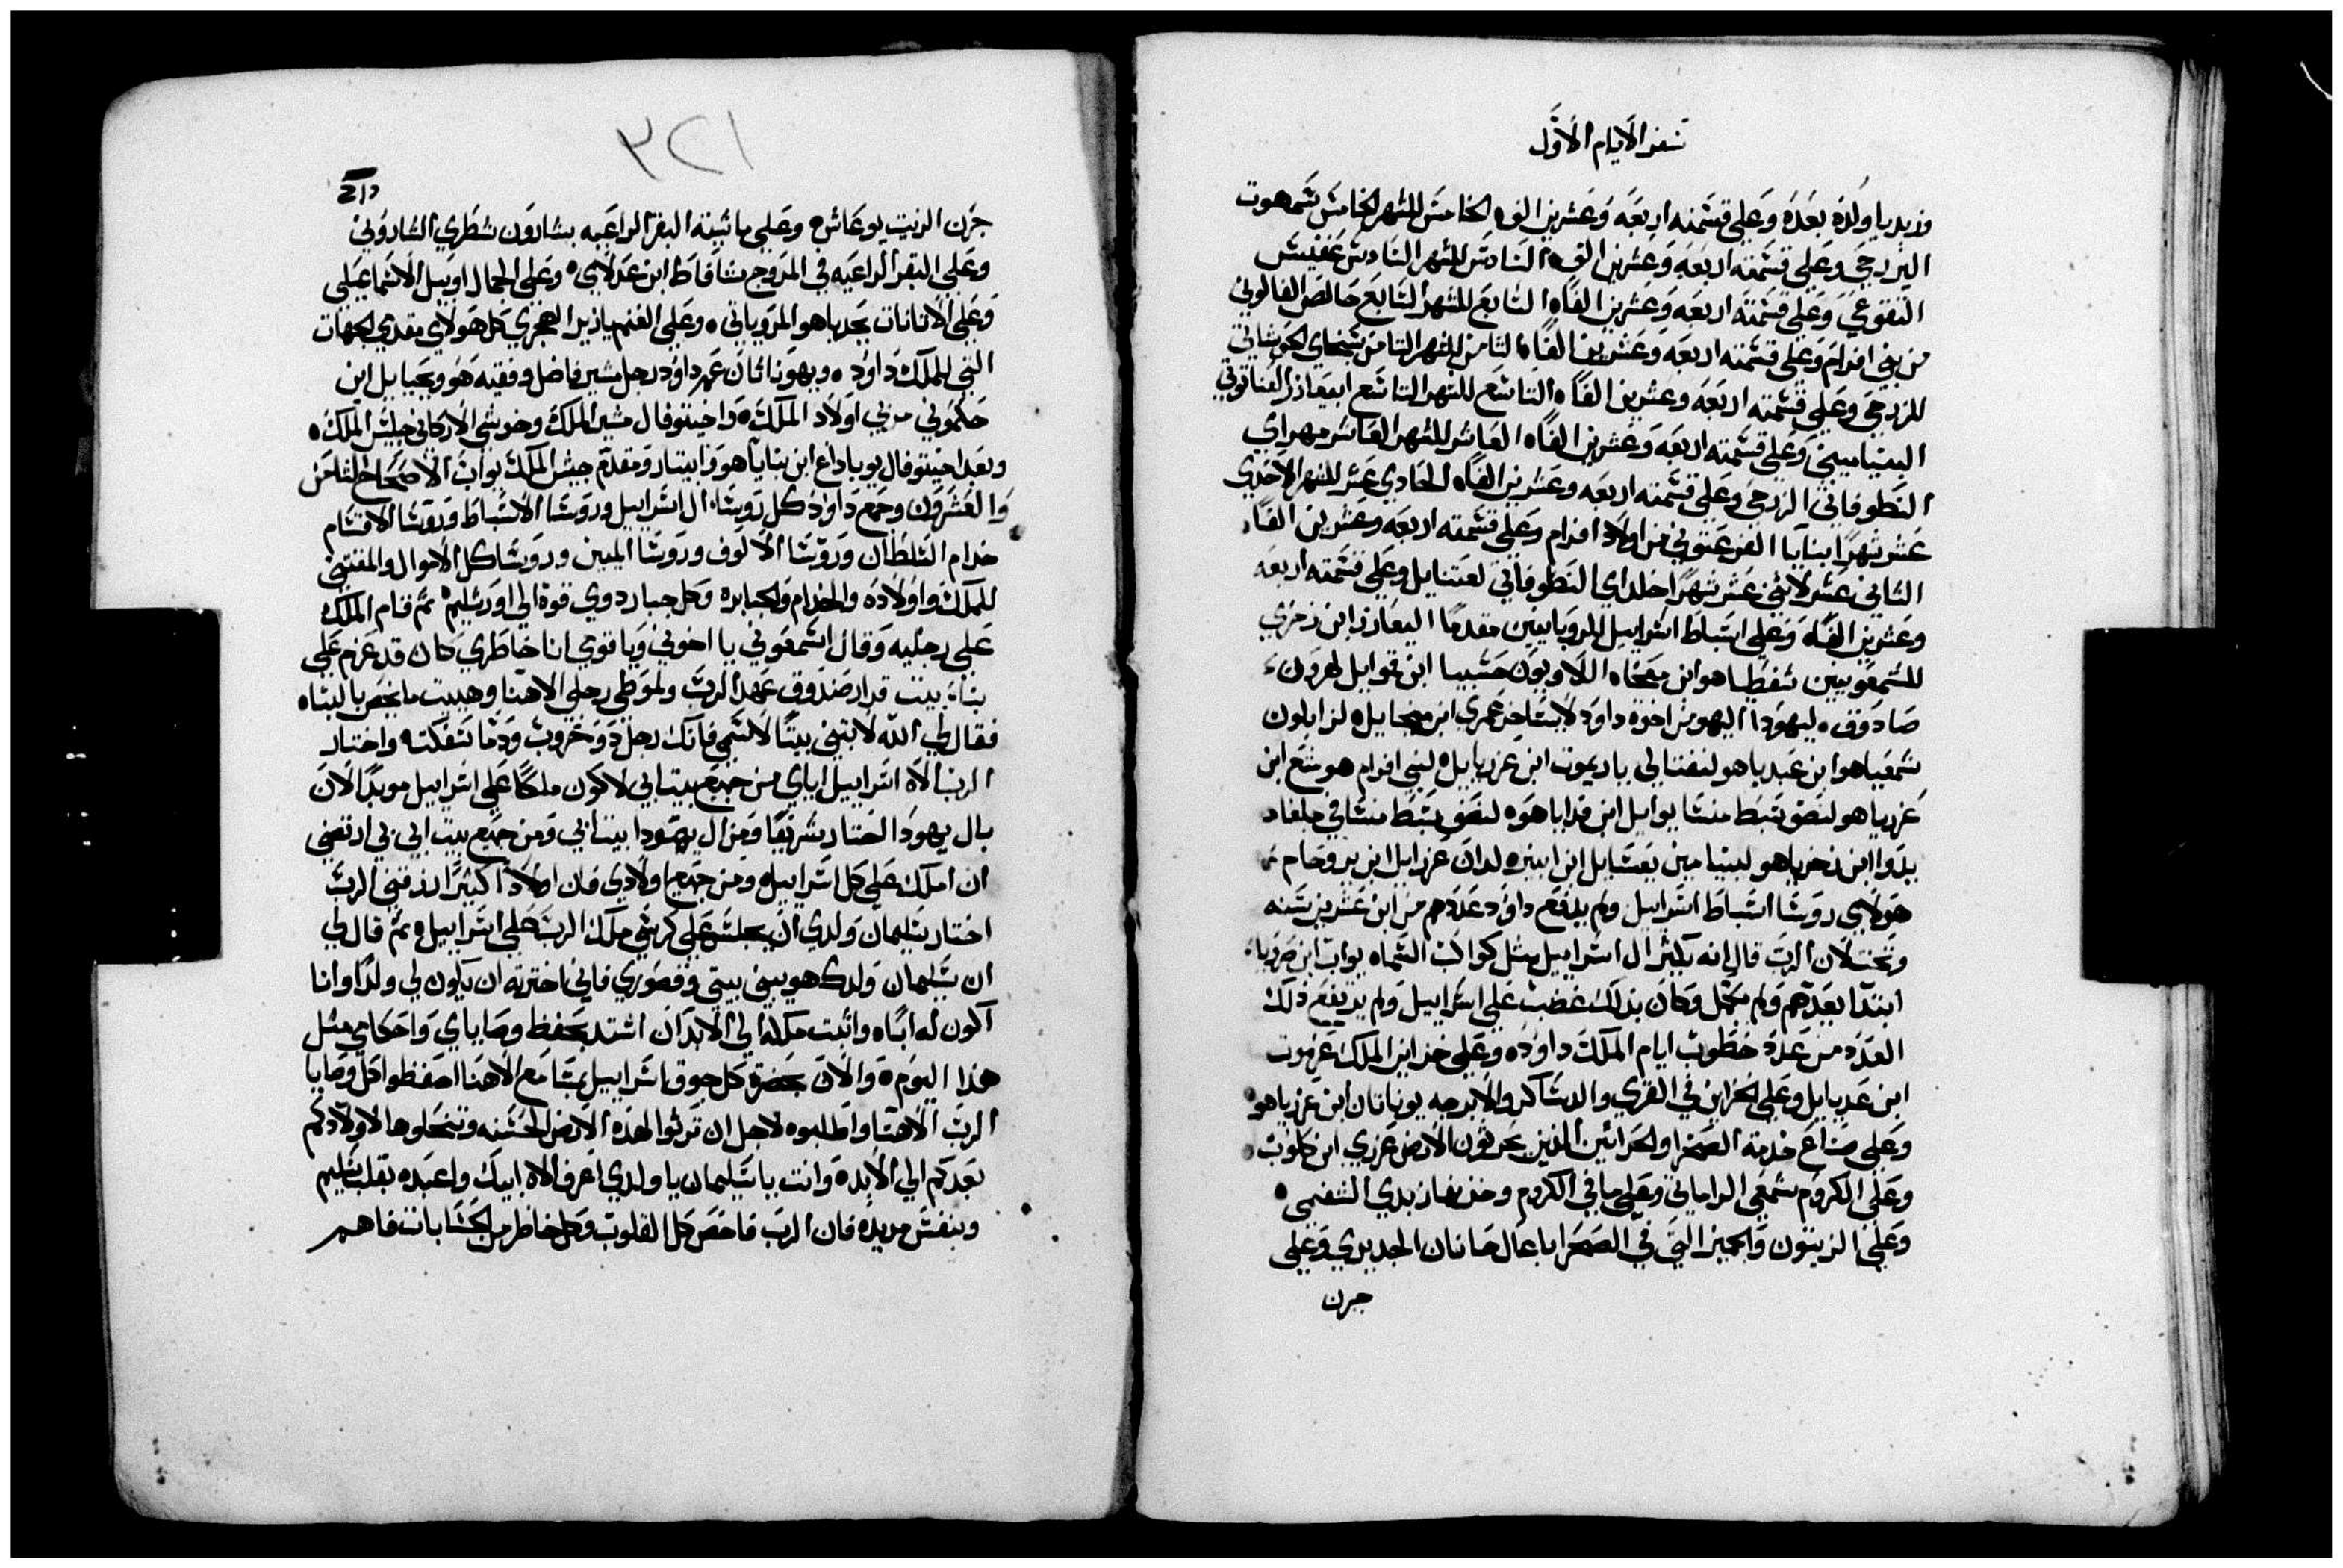 سفر الايام الاول
وزبديا ولده بعده وعلى قسمته اربعه وعشرين الف الخامس للشهر الخامس شمهوت
اليزرحي وعلى قسمته اربعه وعشرين الف السادس للشهر السادس عفيش
التقوعي وعلى قسمته اربعه وعشرين الفاً السابع للشهر السابع حالص الفالوني
من بني افرام وعلى قسمته اربعه وعشرين الفاً الثامن للشهر الثامن سبخاي الحوشاتي
للزرحي وعلى قسمته اربعه وعشرين الفاً التاسع للشهر التاسع ابيعازر العناتوتي
البنياميني وعلى قسمته اربعه وعشرين الفاً العاشر للشهر العاشر مهراي
النطوفاني الزرحي وعلى قسمته اربعه وعشرين الفاً الحادي عشر للشهر الاحدي
عشر شهراً بنايا الفرعتوني من اولاد افرام وعلى قسمته اربعه وعشرين الفاً
الثاني عشر لاثني عشر شهراً خلداي النطوفاتي لعتنايل وعلى قسمته اربعه
وعشرين الفاً وعلى اسباط اسراييل للروبانيين مقدماً اليعازر ابن زخري
للشمعونيين شفطياهو ابن معخاه اللاويون حشبيا ابن قموايل لهرون
صادوق ليهودا اليهو من اخوة داود لايشاخر عمري ابن ميخاييل لزابلون
شمعياهو ابن عبدياهو لنفتالي ياريموت ابن عزرياييل لبني افرام هوشع ابن
عزرياهو لنصف سبط منشا يواييل ابن فداياهو لنصف سبط منشا في جلعاد
يدوا ابن زخرياهو لبنيامين يعشاييل ابن ابينر لدان عزراييل ابن يروحام
هولاي روسا اسباط اسراييل ولم يرفع داود عددهم من ابن عشرين سنه
وتحت لان الرب قال انه يكثر ال اسراييل مثل كواكب السماه يواب ابن صرويا
ابتدا بعدهم ولم يكمل وكان بذلك غضب على اسراييل ولم يرتفع ذلك
العدد من عدد خطوب ايام الملك داود وعلى خزاين الملك عزموت
ابن عدياييل وعلى الخزاين في القرى والدساكر والابرجه يوناثان ابن عزياهو
وعلى صناع خدمة الصحرا والحراثين الذين يحرثون الارض عزري ابن كلوب
وعلى الكروم شمعي الراماتي وعلى ما في الكروم وخزن زبدي الشفمي
وعلى الزيتون والجميز التي في الصحرا باعال حانان الجديري وعلى
جرن
٣٢١
جرن الزيت يوعاش وعلى ماشية البقر الراعيه بشارون شطري الشاروني
وعلى البقر الراعيه في المروج شافاط ابن عدلاي وعلى الجمال اوبيل الاسماعيلي
وعلى الاتانات يحدياهو المروناتي وعلى الغنم يازيز الهجري كل هولاي مقدمي الجهات
التي للملك داود ويهوناثان عم داود رجل مشير فاضل وفقيه هو ويحياييل ابن
حكموني مربي اولاد الملك واخيتوفال مشير الملك وخوشي الاركاني جليس الملك
وبعد اخيتوفال يوياداع ابن بناياهو وابيتار ومقدم جيش الملك يواب الاصحاح الثامن
والعشرون وجمع داود كل روسا ال اسراييل وروسا الاسباط وروسا الاقسام
خدام السلطان وروسا الالوف وروسا الميين وروسا كل الاموال والمقتني
للملك واولاده والخدام والجبابره وكل جبار دوي قوة الي اورشليم ثم قام الملك
على رجليه وقال اسمعوني يا اخوتي ويا قومي انا خاطري كان قد عزم على
بناء بيت قرار صندوق عهد الرب ولموطي رجلي الاهنا وهييت ما يختص بالبناه
فقال لي الله لا تبني بيتاً لاسمي فانك رجل دو حروب ودما سفكت واختار
الرب الاه اسراييل اياي من جميع بيت ابي لاكون ملكاً على اسراييل موبداً لان
بال يهودا اختار شريفاً ومن ال يهودا بيت ابي ومن جميع بيت ابي بي ارتضي
ان املك على كل اسراييل ومن جميع اولادي فان اولاداً كثيراً رزقني الرب
اختار سليمان ولدي ان يجلس على كرسي ملك الرب على اسراييل ثم قال لي
ان سليمان ولدك هو يبني بيتي وقصوري فاني اخترته ان يكون لي ولداً وانا
اكون له اباً واثبت ملكه الي الابد ان اشتد بحفظ وصاياي واحكامي مثل
هذا اليوم والان بحضرة كل جوق اسراييل بمسامع الاهنا احفظوا كل وصايا
الرب الاهنا واطلبوه لاجل ان ترثوا لهذه الارض الحسنه وتنحلوها لاولادكم
بعدكم الي الابد وانت يا سليمان يا ولدي اعرف الاه ابيك واعبده بقلب سليم
وبنفس مريده فان الرب فاحص كل القلوب وكل خاطر من الحسابات فاهم